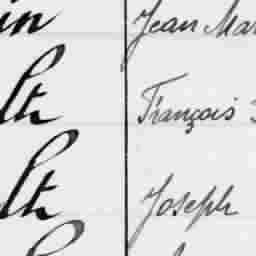 in Jean Mar
lth François
lth Joseph